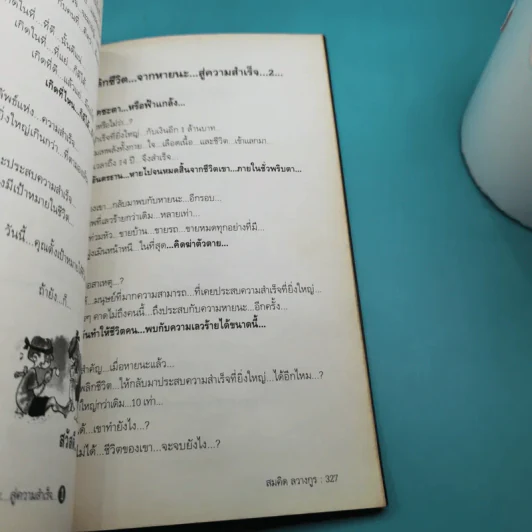 เกิดในที่...ที่ดี...นั้นดีแน่
เกิดในที่...ที่แย่...ก็ยังได้
เกิดที่ดี...แล้วแย่
เกิดที่ไหน...
...ความสำเร็จ...
ยิ่งใหญ่เกินกว่า...ที่
ประสบความสำเร็จ...
มีเป้าหมายในชีวิต...
วันนี้...คุณตั้งเป้าหมาย
ถ้ายัง...ก็...
สวัสดี
...สู่ความสำเร็จ...
ลิกชีวิต...จากหายนะ...สู่ความสำเร็จ...2...
ชะตา...หรือฟ้าแกล้ง...
หรือไม่ว่า...?
เร็จที่ยิ่งใหญ่...กับเงินอีก 1 ล้านบาท
เทพลังทั้งกาย...ใจ...เลือดเนื้อ...และชีวิต...เข้าแลกมา
เวลาถึง 14 ปี...จึงสำเร็จ...
อันตรธาน...หายไปจนหมดสิ้นจากชีวิตเขา...ภายในชั่วพริบตา...
เขา...กลับมาพบกับหายนะ...อีกรอบ...
ที่เลวร้ายกว่าเดิม...หลายเท่า...
ท่วมหัว...ขายบ้าน...ขายรถ...ขายหมดทุกอย่างที่มี...
เมินหน้าหนี...ในที่สุด...คิดฆ่าตัวตาย...
สาเหตุ...?
...มนุษย์ที่มากความสามารถ...ที่เคยประสบความสำเร็จที่ยิ่งใหญ่...
ๆ คาดไม่ถึงคนนี้...ถึงประสบกับความหายนะ...อีกครั้ง...
ทำให้ชีวิตคน...พบกับความเลวร้ายได้ขนาดนี้...
สำคัญ...เมื่อหายนะแล้ว...
พลิกชีวิต...ให้กลับมาประสบความสำเร็จที่ยิ่งใหญ่...ได้อีกไหม...?
ใหญ่กว่าเดิม...10 เท่า...
ได้...เขาทำยังไง...?
ไม่ได้...ชีวิตของเขา...จะจบยังไง...?
สมคิด ลวางกูร : 327